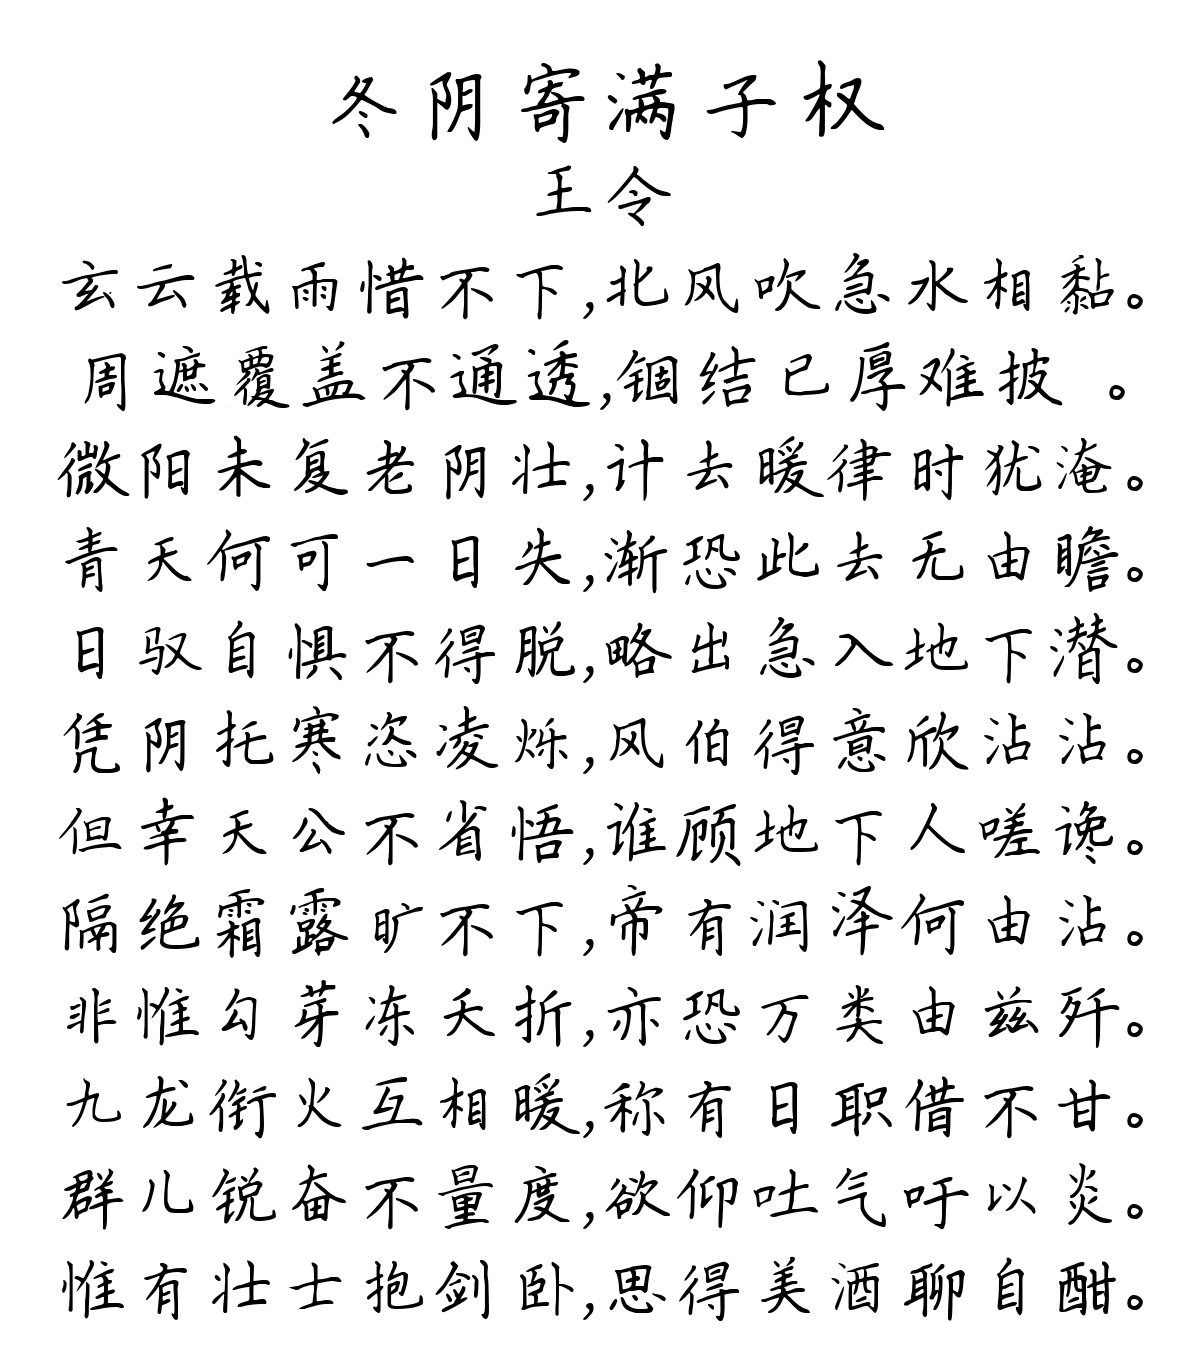 冬阴寄满子权
王令
玄云载雨惜不下,北风吹急水相黏。
周遮覆盖不通透,锢结已厚难披 。
微阳未复老阴壮,计去暖律时犹淹。
青天何可一日失,渐恐此去无由瞻。
日驭自惧不得脱,略出急入地下潜。
凭阴托寒恣凌烁,风伯得意欣沾沾。
但幸天公不省悟,谁顾地下人嗟谗。
隔绝霜露旷不下,帝有润泽何由沾。
非惟勾芽冻夭折,亦恐万类由兹歼。
九龙衔火互相暖,称有日职借不甘。
群儿锐奋不量度,欲仰吐气吁以炎。
惟有壮士抱剑卧,思得美酒聊自酣。